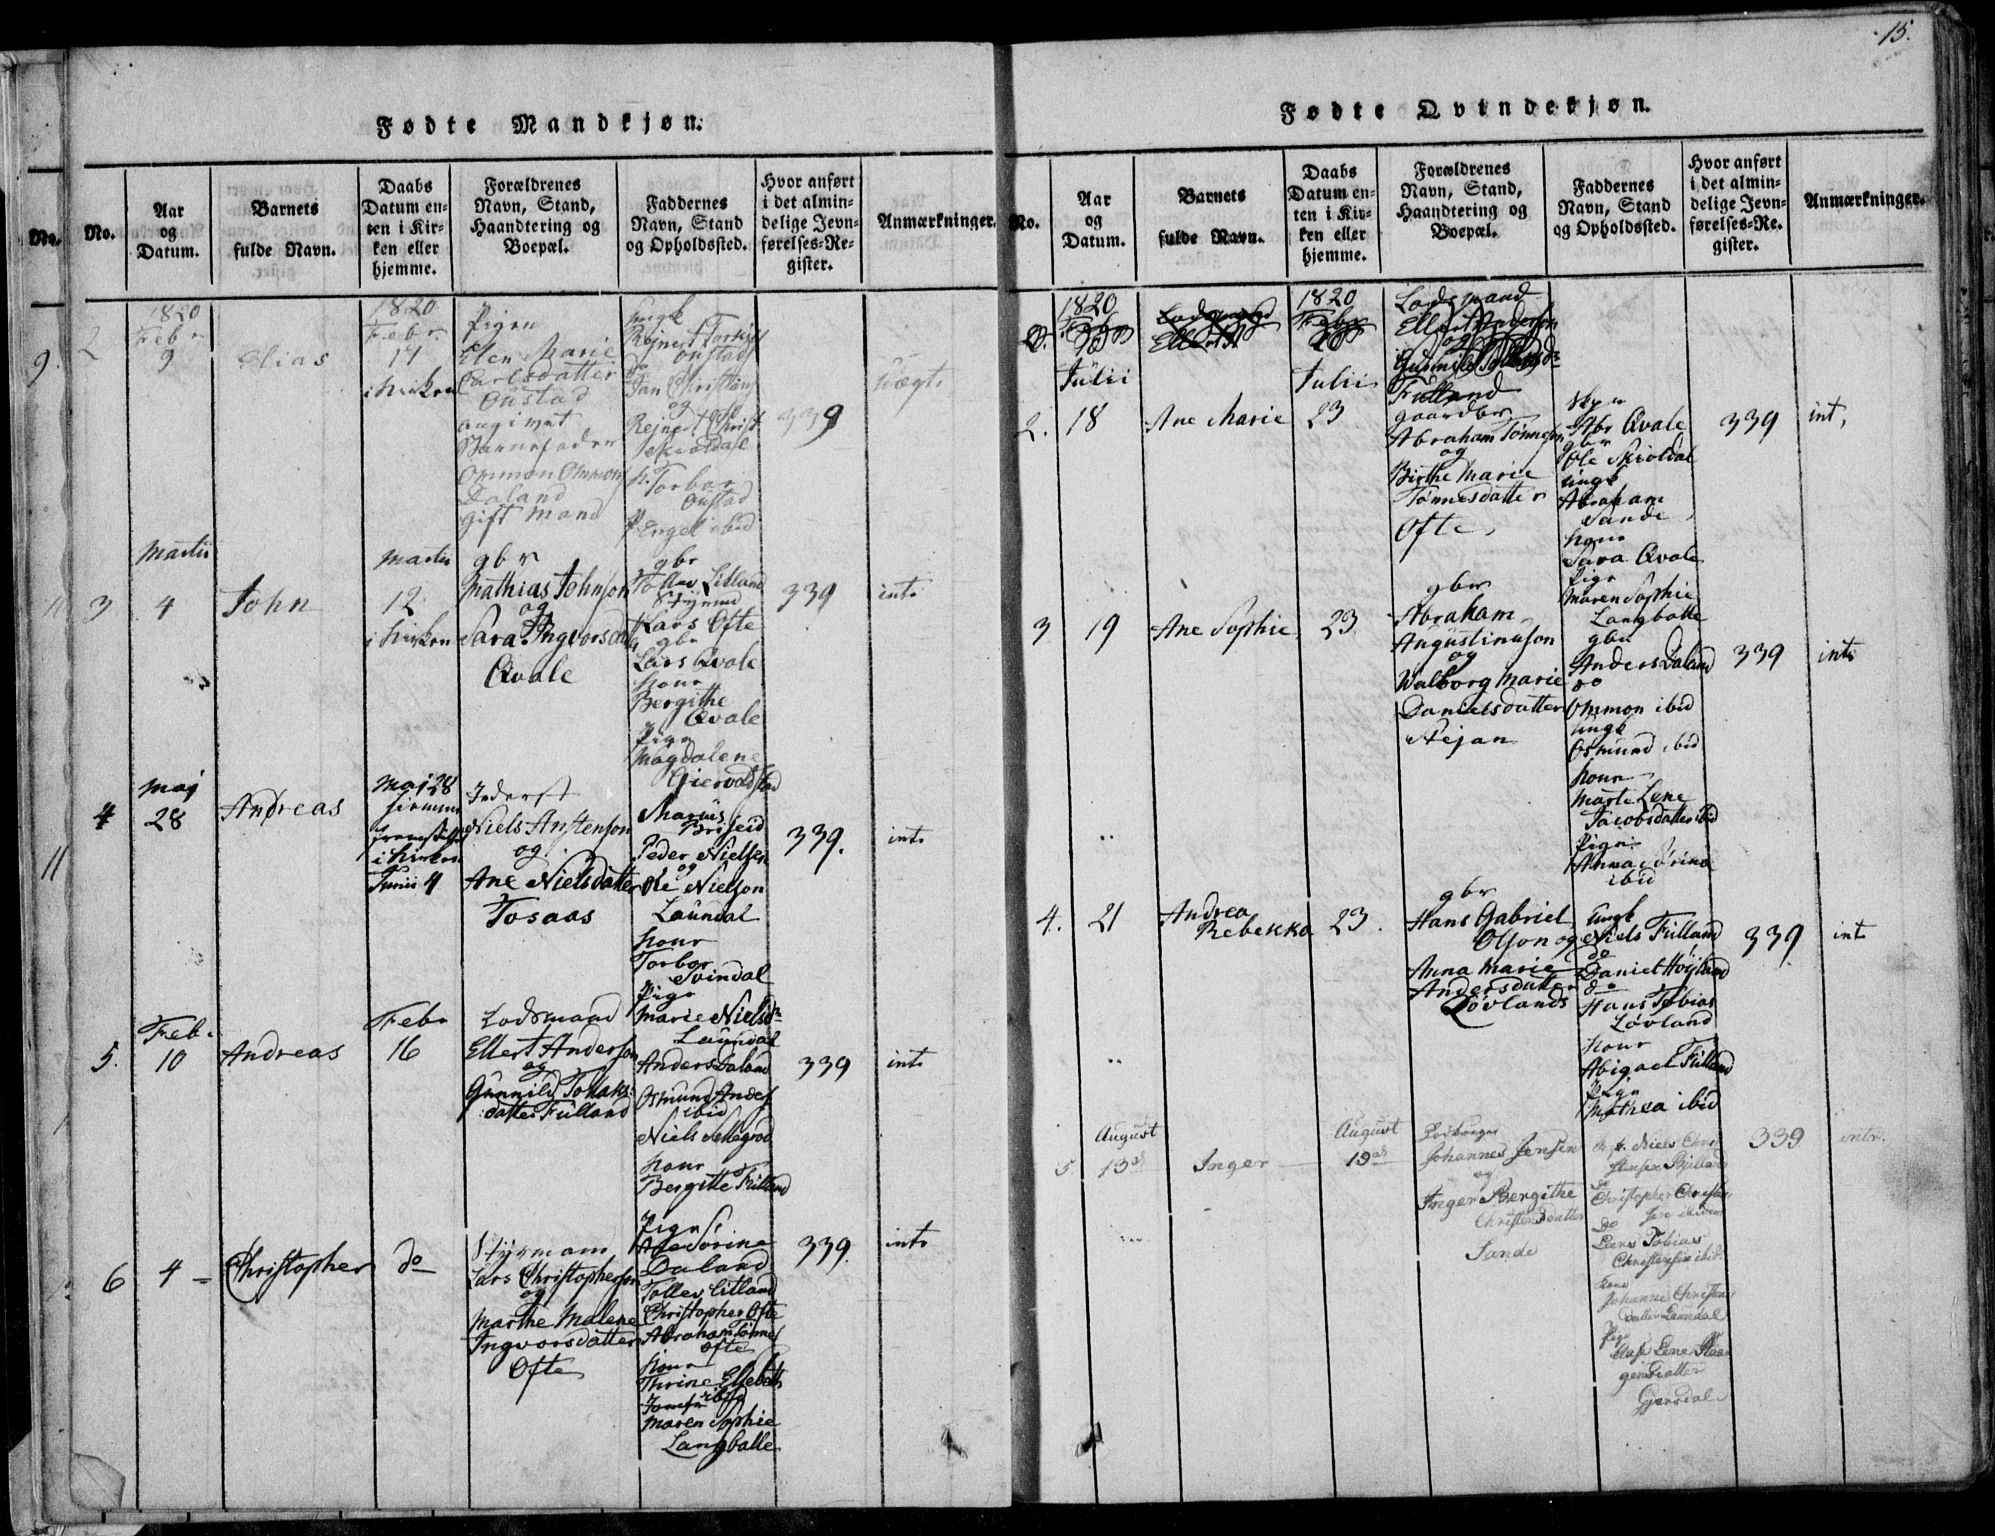 15.
Fødte Mandkjøn.
No.
No.
Aar
og
Datum.
Barnets
fulde Navn.
Daabs
Datum en-
ten i Kir-
ken eller
hjemme.
Forældrenes
Navn, Stand,
Haandtering og
Boepæl.
Faddernes
Navn, Stand
og Opholdssted.
Hvor anført
i det almin-
delige Jevn-
førelses-Re-
gister.
Anmærkninger.
9.
11
11
2
1820
Febr
9
Elias
1820
Febr
17
i Kirken
Pigen
Elen Marie
Carlsdatter
Oustad
angivet
Barnefader
Ommon Ommons
Daland
Gift Mand
Ungk
Rejnert Torkils
Oustad
do
Jan Christians
og
Rejnert Christ
Skioldal
K. Torbor
Oustad
P Engel ibid
339
uægte
3
Martii
4
John
Martii
12
i Kirken
gbr
Mathias Johnson
og
Sara Ingvorsdatter
Qvale
gbr
Tollav Litland
Styrmd
Lars Ofte
gbr
Lars Qvale
Kone
Bergithe
Qvale
Pige
Magdalene
Giervoldstad
339
int.
4
Maj
28
Andreas
Maj 28
hiemme
fremstillet
i Kirken
Junii 4
Inderst
Niels Anstenson
og
Ane Nielsdatter
Tosaas
Marius
Briseid
Peder Nielsen
og
Ole Nielson
Laundal
Kone
Torbor
Svindal
Pige
Marie Nielsdr
Laundal
339.
int.
5.
Feb.
10
Andreas
Febr
16
Lodsmand
Ellert Anderson
og
Gunnild Tollaks-
datter Fulland
Anders Daland
Osmund Anders
ibid
Niels Sellegrod
Kone
Bergitte Fulland
Pige
Ane Sorine
Daland
339
int.
6
4
Christopher
do
Styrmam
Lars Christopherson
og
Marthe Malene
Ingvorsdatter
Ofte
Tollev Litland
Christopher Ofte
Abraham Tønnes
Ofte
Kone
Thrine Elsebeth
ibid
Jomfr
Maren Sophie
Langballe
339.
int.
Fødte Qvindekjøn.
No.
Aar
og
Datum.
Barnets
fulde Navn.
Daabs
Datum en-
ten i Kir-
ken eller
hjemme.
Forældrenes
Navn, Stand,
Haandtering og
Boepæl.
Faddernes
Navn, Stand
og Opholdssted.
Hvor anført
i det almin-
delige Jevn-
førelses-Re-
gister.
Anmærkninger.
1820
1820
Febr
Lodsmand
Ellert Anderson
og
Gunnild Tollaksdr
Fulland
2.
Julii
18
Ane Marie
Julii
23
gaardbr
Abraham Tønneson
og
Birthe Marie
Tønnesdatter
Ofte
Abr Qvale
gbr
Ole Skioldal
Ungk
Abraham
Sande
Kone
Sara Qvale
Pige
Maren Sophie
Langballe
339
int,
3
19
Ane Sophie
23
gbr
Abraham
Augustinuson
og
Walborg Marie
Danielsdatter
Nejan
gbr
Anders Daland
do
Ommon ibid
Ungk
Osmund ibid
Kone
Marte Lene
Jacobsdatter ibid
Pige
Anna Sørine
ibid
339
int.
4.
21
Andrea
Rebekka
23.
gbr
Hans Gabriel
Olson og
Anna Marie
Andersdatter
Løvlands
Ungk
Niels Fulland
do
Daniel Høyland
do
Hans Tobias
Løvland
Kone
Abigael Fulland
Pige
Mathea ibid
339
int.
5
August
13de
Inger
August
19de
Johannes Jensen
og
Inger Bergithe
Christensdatter
Sande
Niels Chri
stensen
do
Christopher Christen
sen ibidem
Do
Lars Tobias
Christensen ibid.
Kone
Johanne Christens
datter Laundal
Pige
Aase Lene
gensdatter
Gjersdal
339
intr.